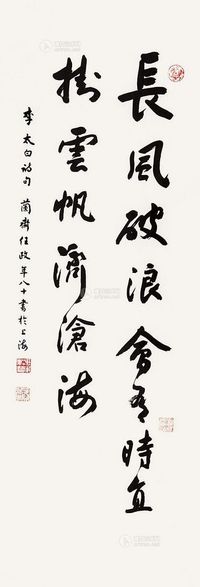 長風破浪會有時直
掛雲帆濟滄海
李太白詩句 蘭齋任政年八十書於上海